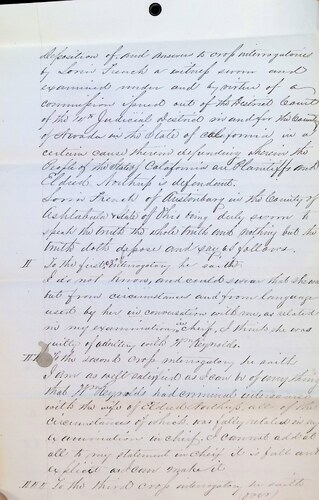 Deposition of and answers to cross interrogatories
by Loren French a witness sworn and
examined under and by virtue of a
commission issued out of the District Court
of the 14th Judicial District in and for the County
of Nevada in the State of California in a
certain cause therein depending wherein the
People of the State of California are Plaintiffs and
Eldred Northup is defendant.
Loren French of Austenburg in the County of
Ashtabula & State of Ohio being duly sworn to
speak the truth the whole truth and nothing but the
truth doth depose and say as follows.
To the first interrogatory he saith
I do not know, and could swear that she was
but from circumstances and from language
used by her in conversation with me, as related
in my examination in Chief, I think she was
guilty of adultery with Wm Reynolds.
To the second cross interrogatory he saith
I am as well satisfied as I can be of any thing
that Wm Reynolds had criminal intercourse
with the wife of Eldred Northup, all of the
circumstances of which was fully related in my
examination in chief. I cannot add at
all to my statement in chief it is full and
explicit as I can make it
To the third cross interrogatory he saith
(over)